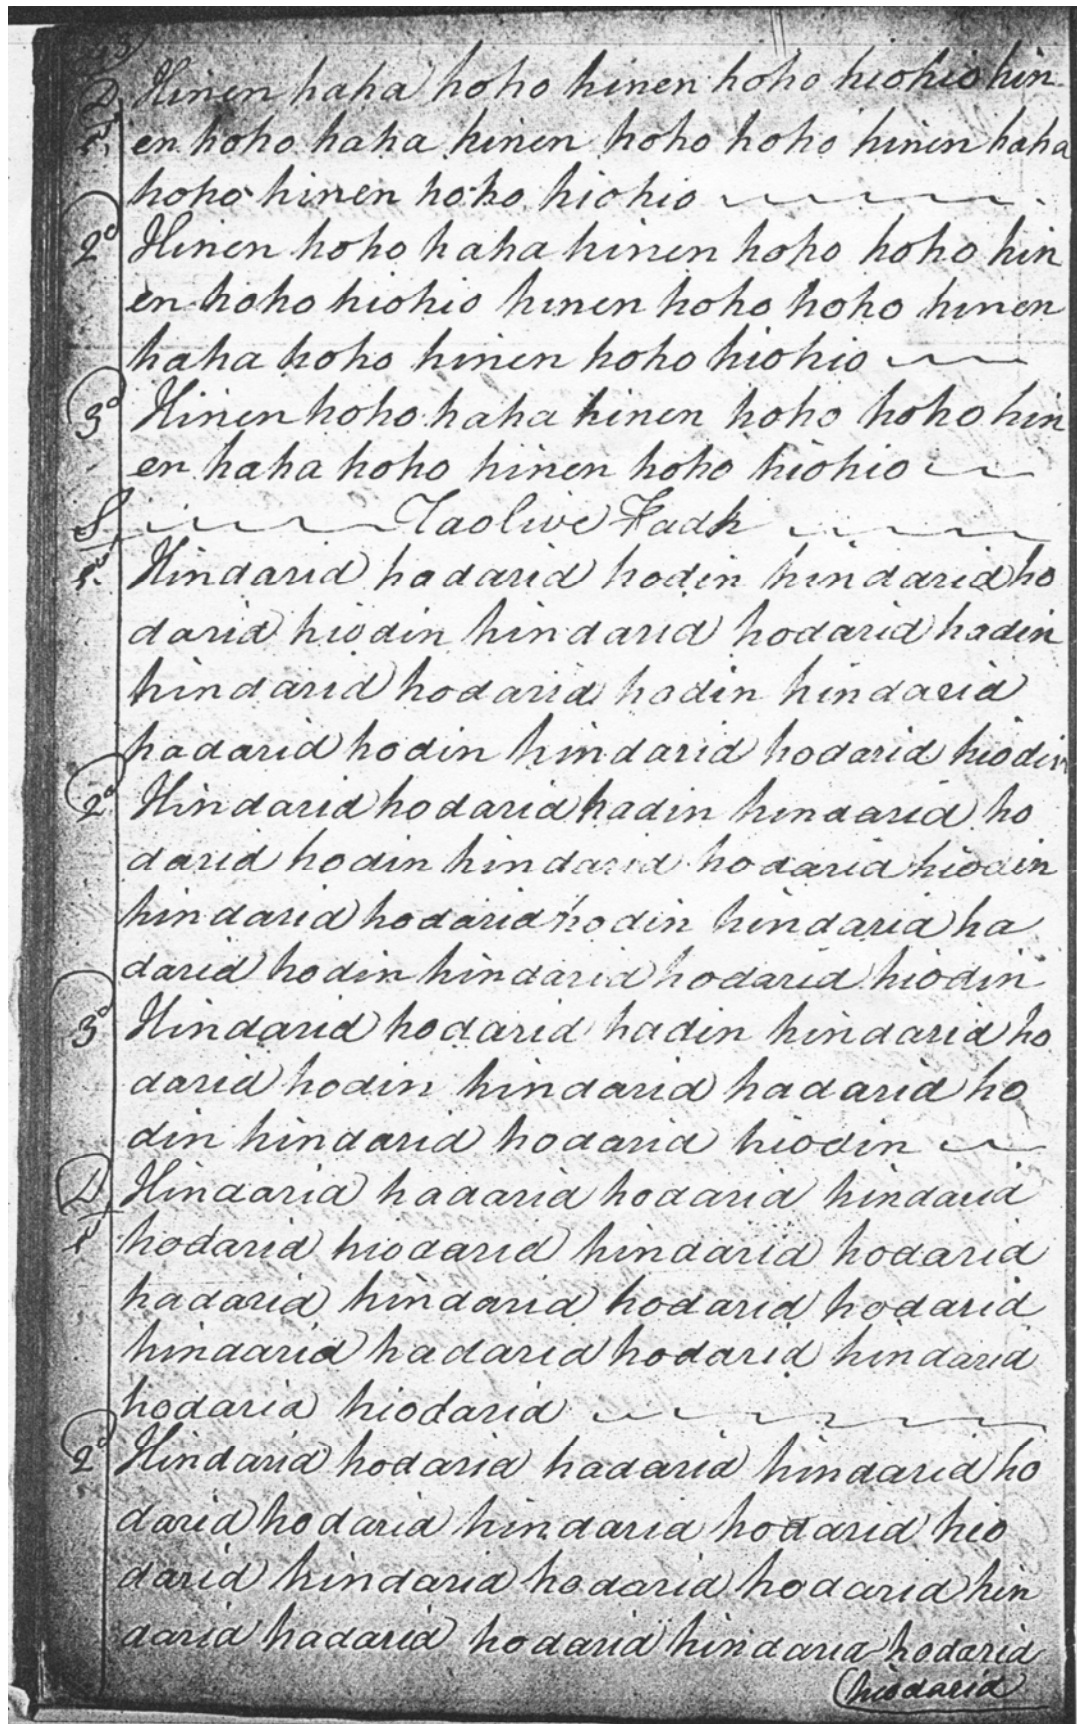 D Hinen haha hoho hinen hoho hiohio hin
1. en hoho haha hinen hoho hoho hinen haha
hoho hinen hoho hiohio
2d Hinen hoho haha hinen hoho hoho hin
en hoho hiohio hinen hoho hoho hinen
haha hoho hinen hoho hiohio
3d Hinen hoho haha hinen hoho hoho hin
en haha hoho hinen hoho hiohio
S Taolive Fadh
1. Hindarid hadarid hodin hindarid ho
darid hiodin hindarid hodarid hadin
hindarid hodarid hodin hindarid
hadarid hodin hindarid hodarid hiodin
2d Hindarid hodarid hadin hindarid ho
darid hodin hindarid hodarid hiodin
hindarid hodarid hodin hindarid ha
darid hodin hindarid hodarid hiodin
3d Hindarid hodarid hadin hindarid ho
darid hodin hindarid hadarid ho
din hindarid hodarid hiodin
D Hindarid hadarid hodarid hindarid
1 hodarid hiodarid hindarid hodarid
hadarid hindarid hodarid hodarid
hindarid hadarid hodarid hindarid
hodarid hiodarid
2d Hindarid hodarid hadarid hindarid ho
darid hodarid hindarid hodarid hio
darid hindarid hodarid hodarid hin
darid hadarid hodarid hindarid hodarid
hiodarid